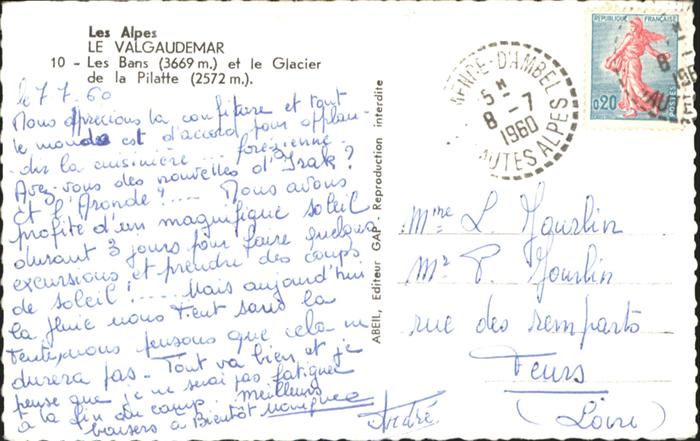 Les Alpes
LE VALGAUDEMAR
10 - Les Bans (3669 m.) et le Glacier
de la Pilatte (2572 m.).
le 7.7.60
Nous apprecions la confiture et tout
le monde est d'accord pour applau-
dir la cuisinière .... forézienne.
Avez-vous des nouvelles d'Isak?
Et l'Aronde? ..... Nous avons
profité d'un magnifique soleil
durant 3 jours pour faire quelques
excursions et prendre des coups
de soleil! ..... Mais aujourd'hui
la pluie nous tient sous la
tente, nous pensons que cela ne
durera pas - Tout va bien et je
pense que je ne serai pas fatigué
à la fin du camp. Meilleurs
baisers à Bientôt
André
ABEIL, Editeur GAP - Reproduction interdite
D'AMBEL
5 H
8 - 7
1960
HAUTES ALPES
REPUBLIQUE FRANÇAISE
0,20
8
Mme L. Jourlin
Mr P. Jourlin
rue des remparts
Feurs
(Loire)